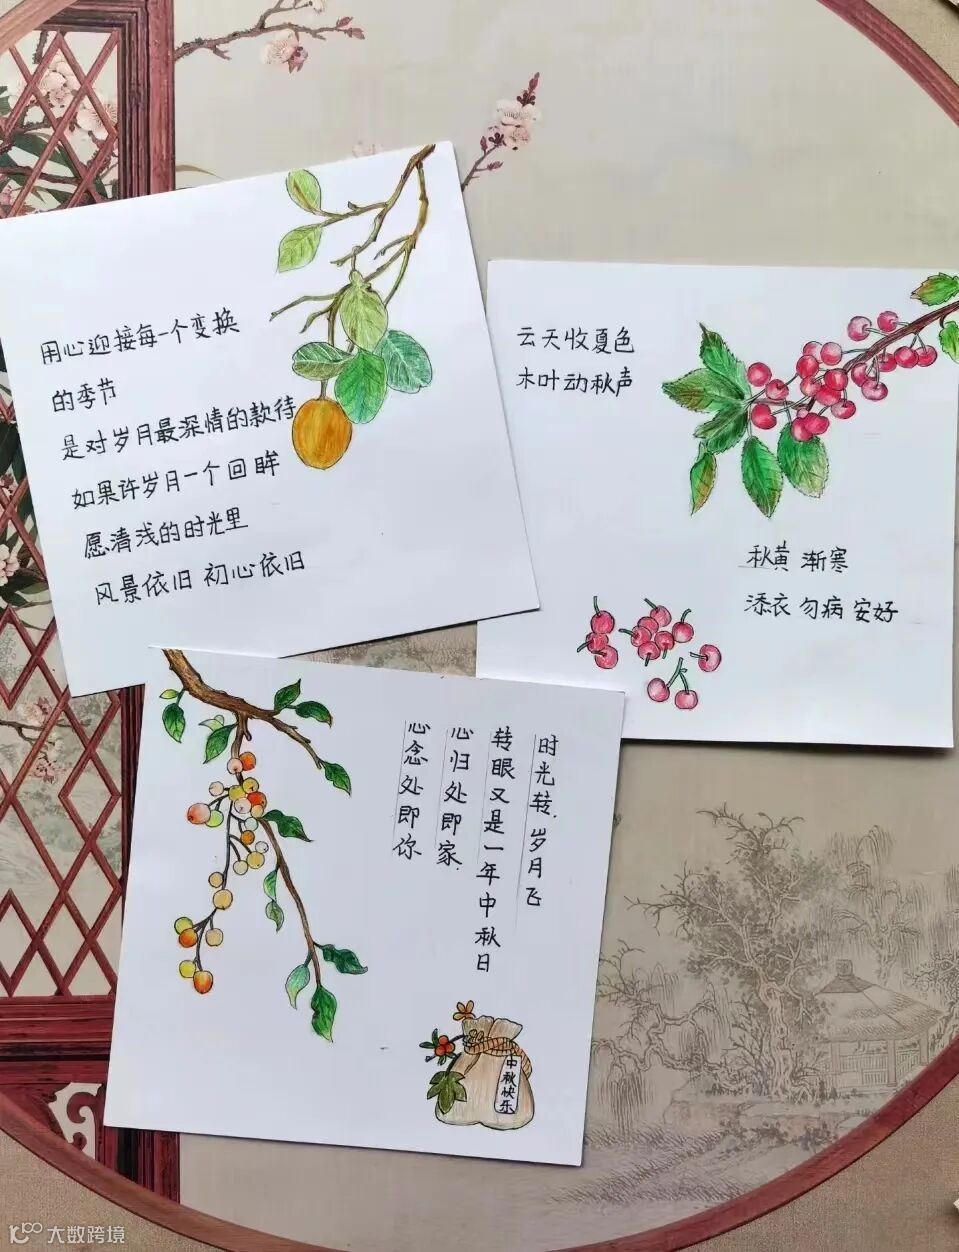 用心迎接每一个变换
的季节
是对岁月最深情的款待
如果许岁月一个回眸
愿清浅的时光里
风景依旧 初心依旧
云天收夏色
木叶动秋声
秋黄渐寒
添衣勿病安好
时光转.岁月飞
转眼又是一年中秋日
心归处即家.
心念处即你
中秋快乐
大数跨境